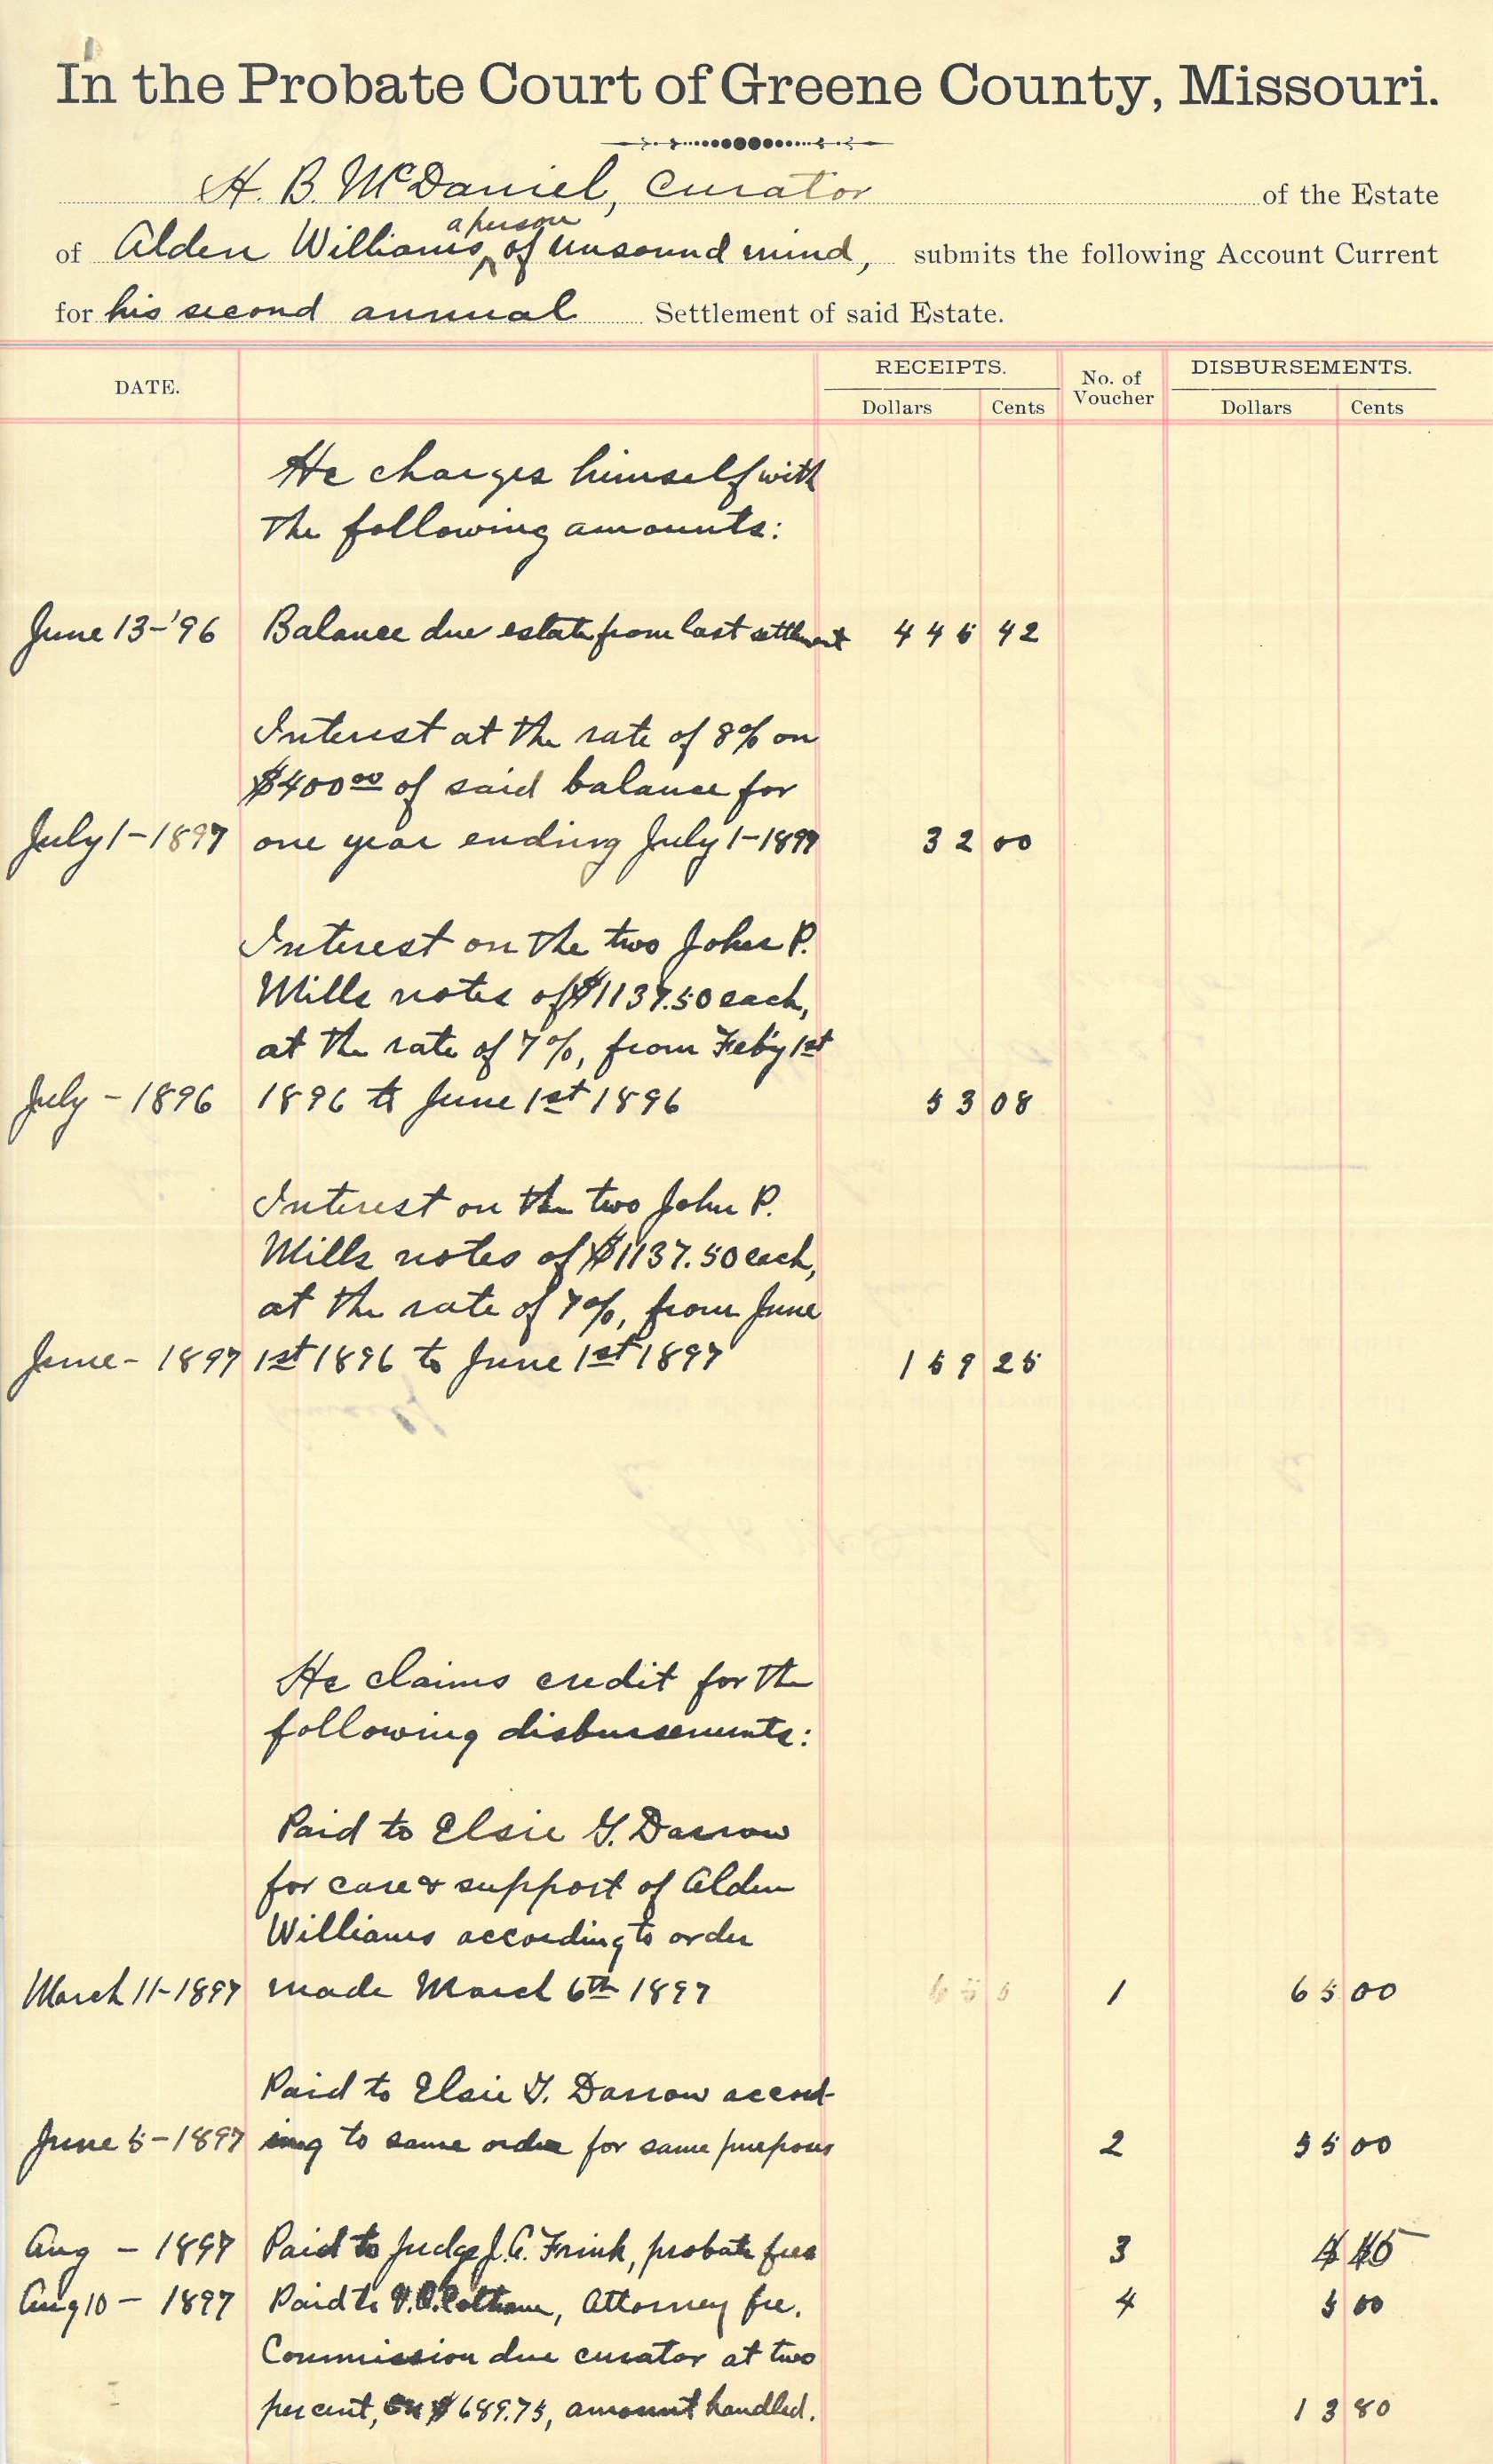 In the Probate Court of Greene County, Missouri.
H. B. McDaniel, Curator of the Estate
a person
of Alden Williams, of unsound mind, submits the following Account Current
for his second annual Settlement of said Estate.
DATE. RECEIPTS. No. of Voucher DISBURSEMENTS.
Dollars Cents Dollars Cents
He charges himself with
the following amounts:
June 13-'96 Balance due estate from last settlement 445 42
Interest at the rate of 8% on
$400.00 of said balance for
July 1-1897 one year ending July 1-1897 32 00
Interest on the two John P.
Mills notes of $1137.50 each,
at the rate of 7%, from Feby 1st
July - 1896 1896 to June 1st 1896 53 08
Interest on the two John P.
Mills notes of $1137.50 each,
at the rate of 7%, from June
June - 1897 1st 1896 to June 1st 1897 159 25
He claims credit for the
following disbursements:
Paid to Elsie G. Darrow
for care & support of Alden
Williams according to order
March 11-1897 made March 6th 1897 1 65 00
Paid to Elsie G. Darrow accord-
June 5-1897 ing to same order for same purposes 2 55 00
Aug - 1897 Paid to Judge J. A. Frink, probate fees 3
Aug 10 - 1897 Paid to Attorney fee. 4 5 00
Commission due curator at two
per cent, on $689.75, amount handled. 13 80